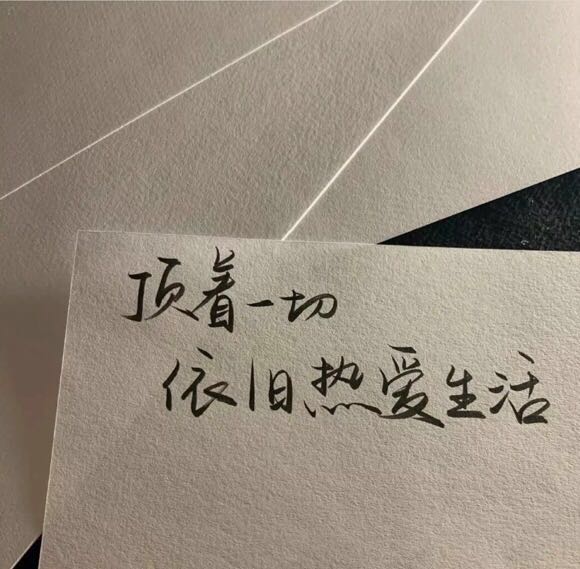 顶着一切
依旧热爱生活